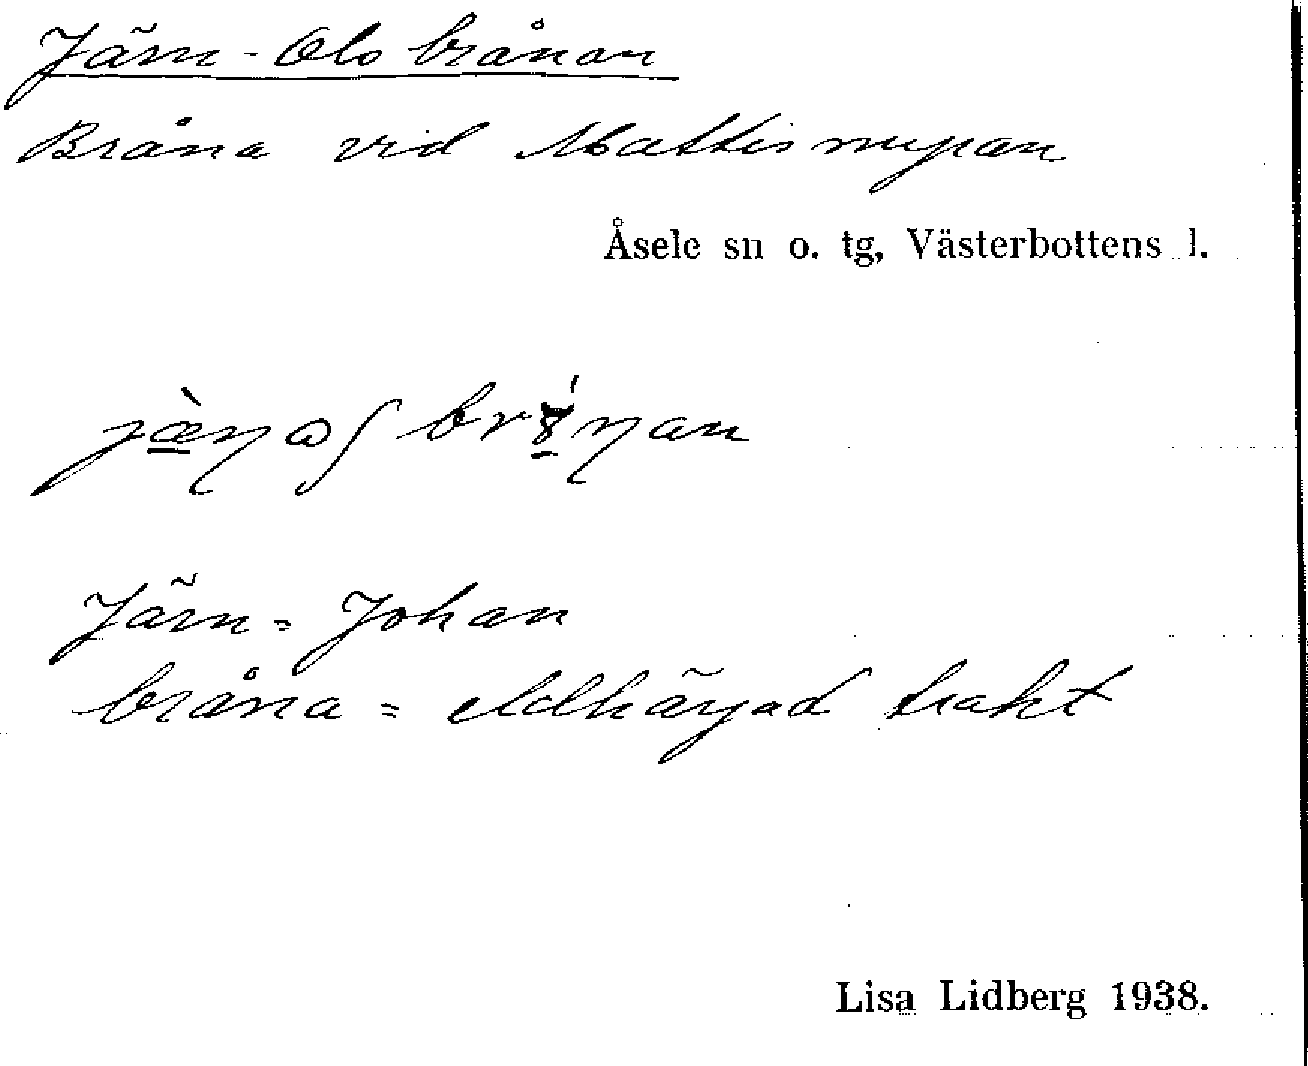 Järn-Ols brånan
Bråna vid Mattisnupan
Åsele sn o. tg, Västerbottens l.
Järn-Johan
bråna = eldhärjad trakt
Lisa Lidberg 1938.